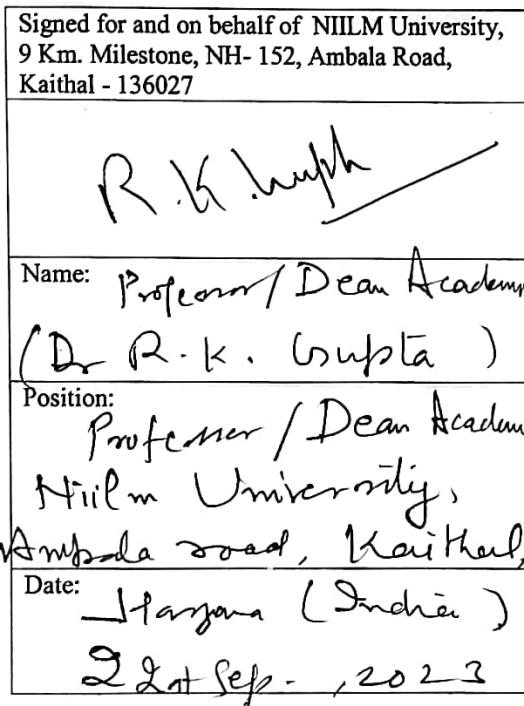 Signed for and on behalf of NIILM University,
9 Km. Milestone, NH- 152, Ambala Road,
Kaithal - 136027
R.K. Gupta
Name: Professor/ Dean Academ
(Dr R.K. Gupta )
Position:
Professor / Dean Academ
Niilm University,
Ambala road, Kaithal,
Date:
Haryana (India)
22nt Sep- , 2023